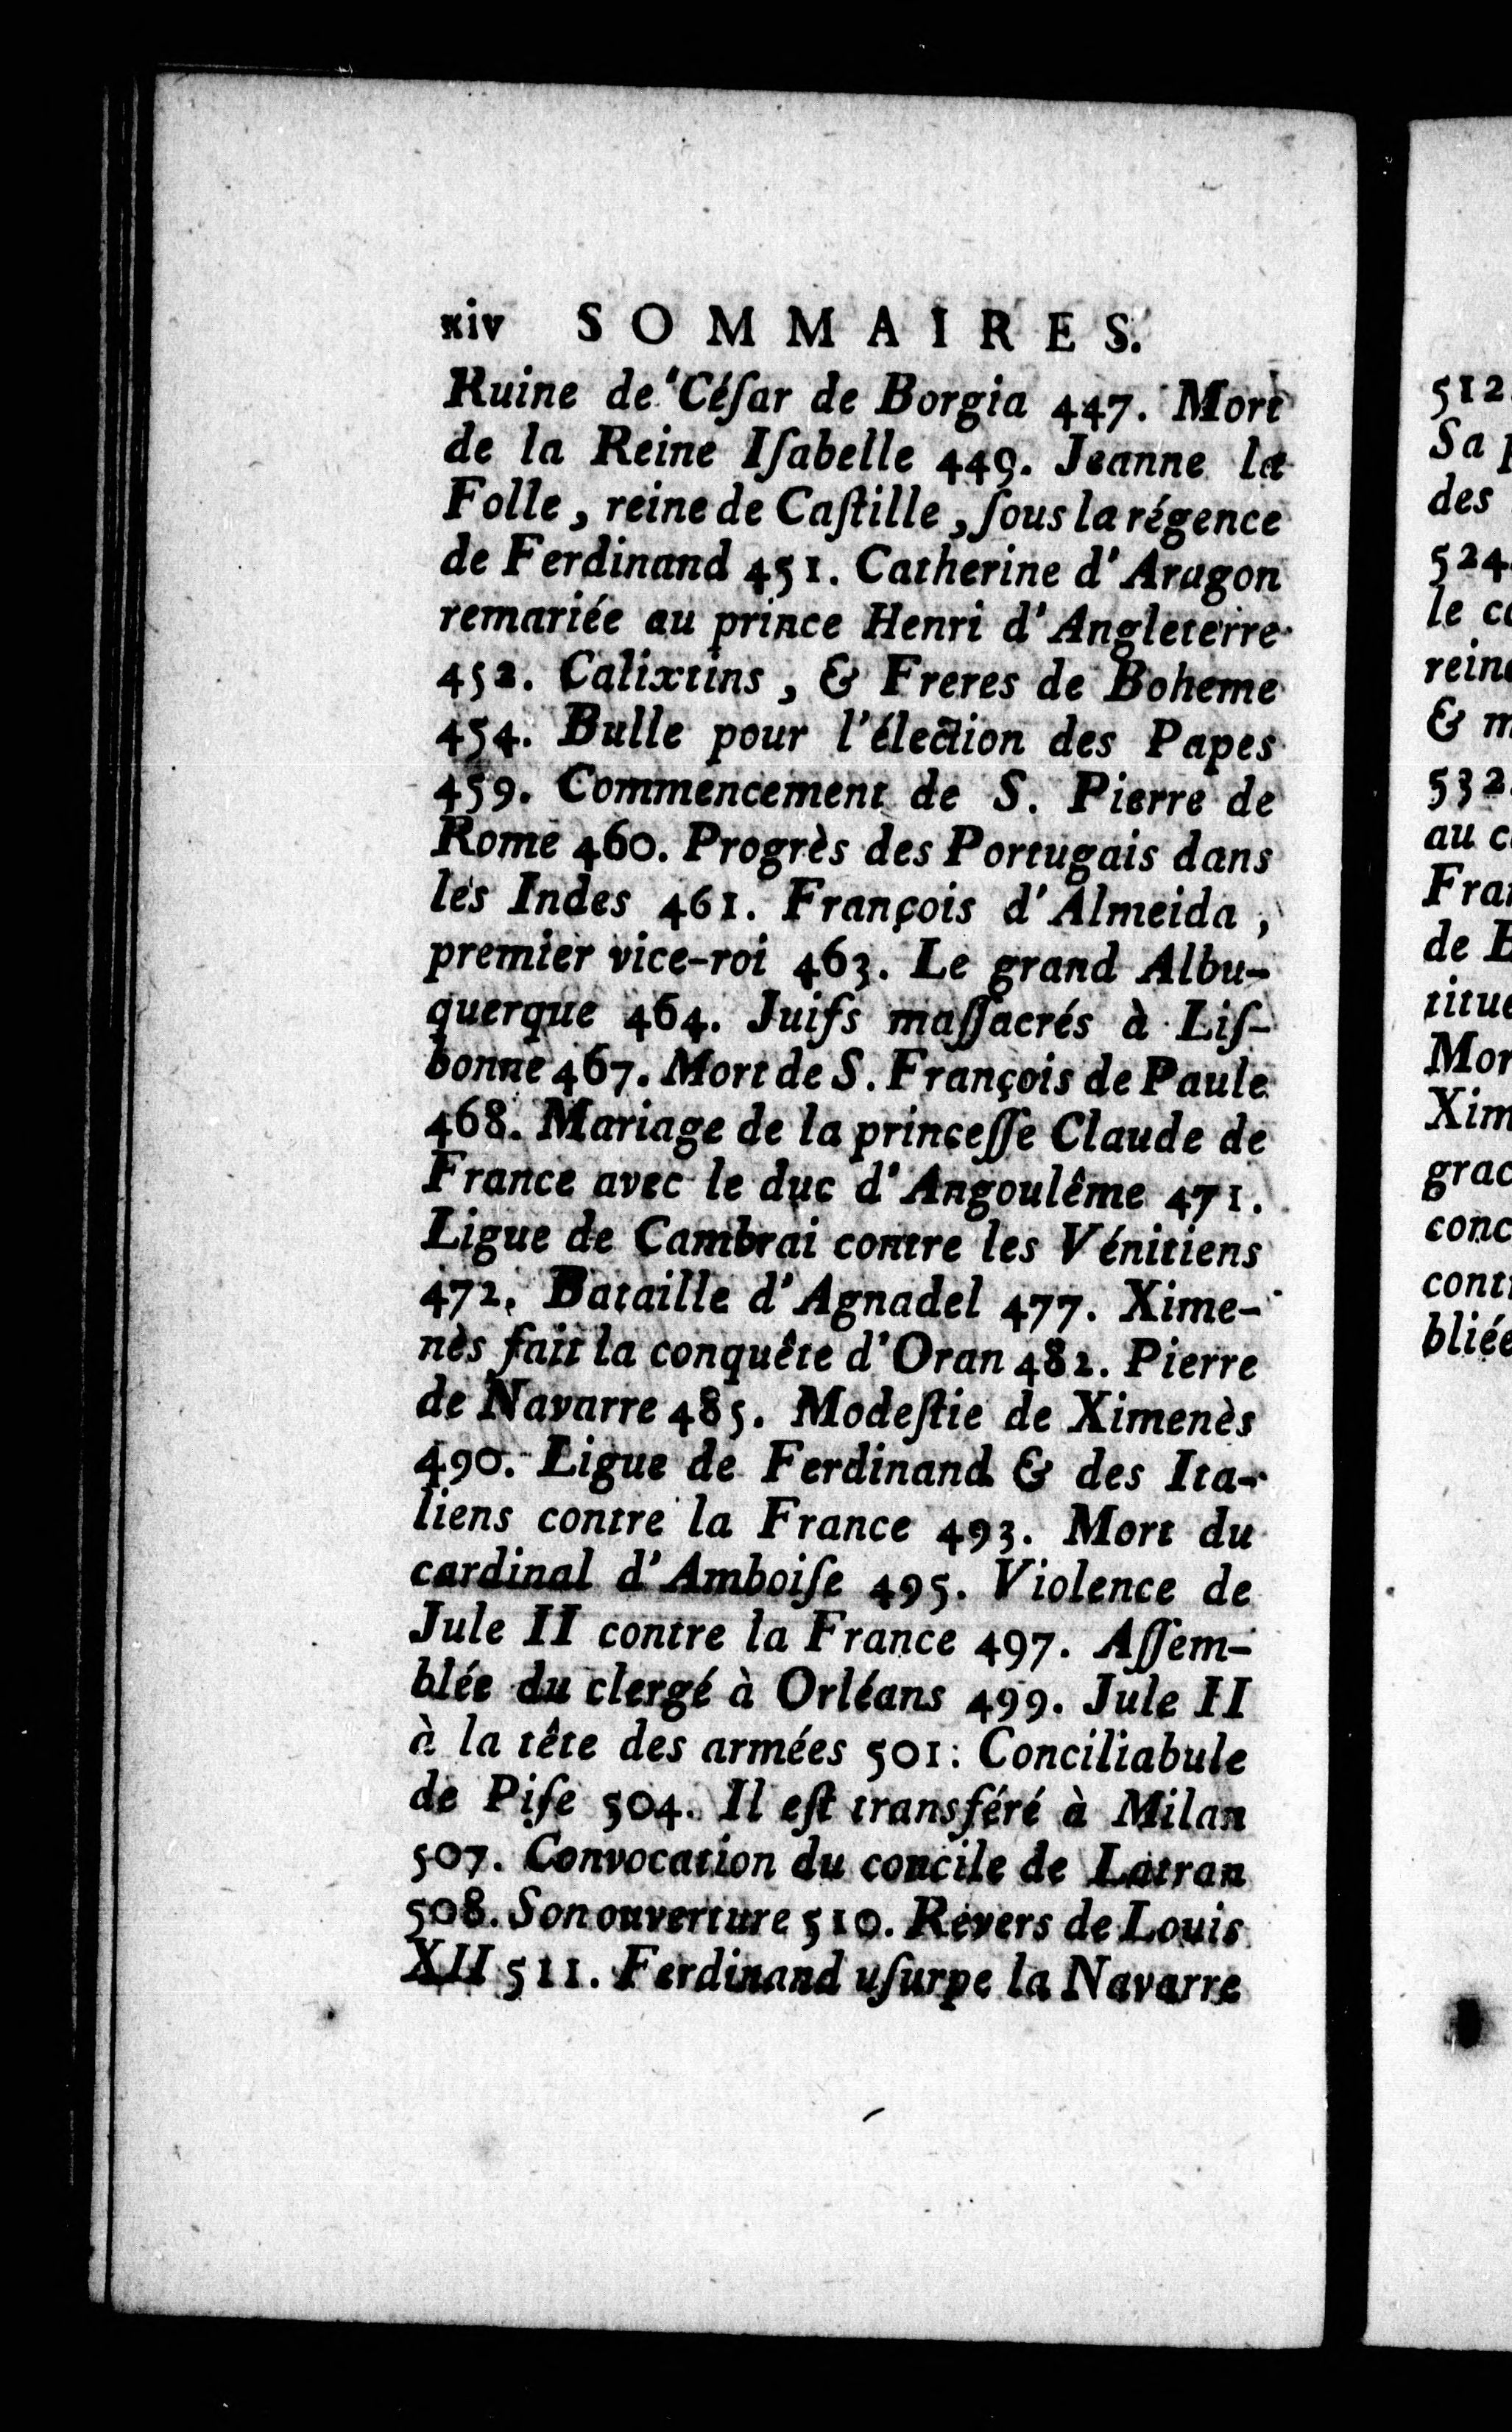 xiv SOMMAIRES.
Ruine de Céſar de Borgia 447. Mort
de la Reine Iſabelle 449. Jeanne la
Folle, reine de Caſtille, ſous la régence
de Ferdinand 451. Catherine d'Aragon
remariée au prince Henri d'Angleterre
452. Calixtins, & Freres de Boheme
454. Bulle pour l'élection des Papes
459. Commencement de S. Pierre de
Rome 460. Progrès des Portugais dans
les Indes 461. François d'Almeida,
premier vice-roi 463. Le grand Albu-
querque 464. Juifs maſſacrés à Liſ-
bonne 467. Mort de S. François de Paule
468. Mariage de la princeſſe Claude de
France avec le duc d'Angoulême 471.
Ligue de Cambrai contre les Vénitiens
472. Bataille d'Agnadel 477. Xime-
nès fait la conquête d'Oran 482. Pierre
de Navarre 485. Modeſtie de Ximenès
490. Ligue de Ferdinand & des Ita-
liens contre la France 493. Mort du
cardinal d'Amboiſe 495. Violence de
Jule II contre la France 497. Aſſem-
blée du clergé à Orléans 499. Jule II
à la tête des armées 501: Conciliabule
de Piſe 504. Il eſt transféré à Milan
507. Convocation du concile de Latran
508. Son ouverture 510. Revers de Louis
XII 511. Ferdinand uſurpe la Navarre
512
Sa
des
524
le
rein
& m
532
au
Fra
de
titu
Mor
Xim
grac
conc
cont
bliée